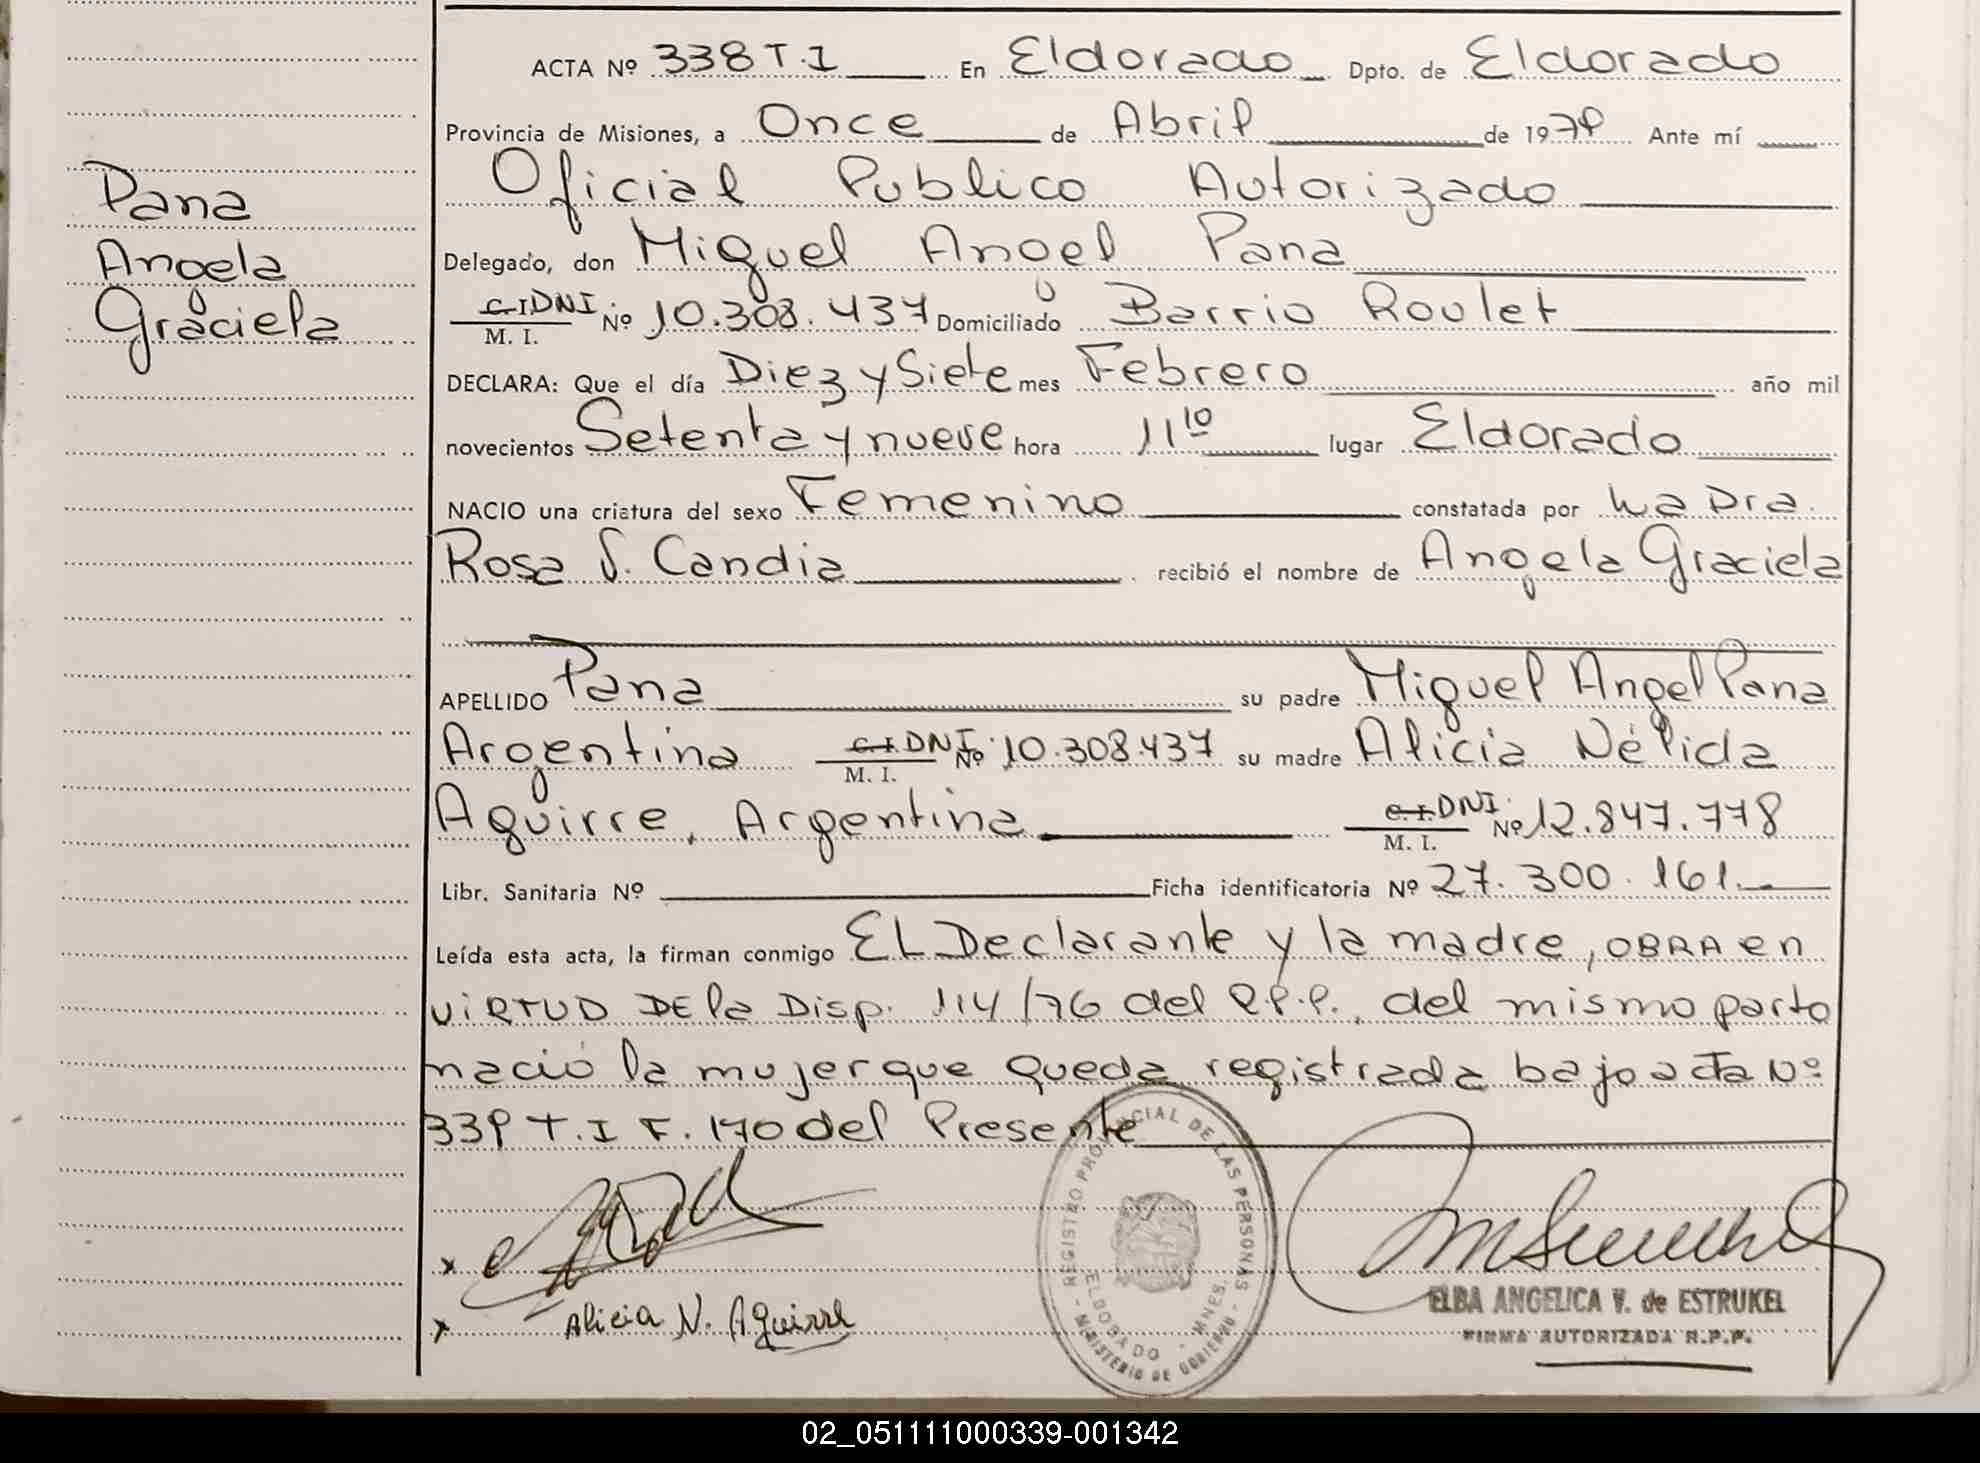 Pana
Angela
Graciela
ACTA Nº 338 T.I En Eldorado Dpto. de Eldorado
Provincia de Misiones, a Once de Abril de 1979 Ante mí
Oficial Publico Autorizado
Delegado, don Miguel Angel Pana
C.I DNI M. I. Nº 10.308.437 Domiciliado Barrio Roulet
DECLARA: Que el día Diez y Siete mes Febrero año mil
novecientos Setenta y nueve hora 11 10 lugar Eldorado
NACIO una criatura del sexo Femenino constatada por La Dra.
Rosa S. Candia recibió el nombre de Angela Graciela
APELLIDO Pana su padre Miguel Angel Pana
Argentino C.I. DNI M. I. Nº 10.308.437 su madre Alicia Nélida
Aguirre, Argentina C.I. DNI M. I. Nº 12.847.778
Libr. Sanitaria Nº Ficha identificatoria Nº 27.300.161.
Leída esta acta, la firman conmigo EL Declarante y la madre, OBRA en
VIRTUD DE la Disp. 114/76 del R.P.P., del mismo parto
nació la mujer que queda registrada bajo acta Nº
339 T.I F. 170 del Presente
REGISTRO PROVINCIAL DE LAS PERSONAS
ELDORADO - MNES.
- MINISTERIO DE GOBIERNO -
x
x Alicia N. Aguirre
ELBA ANGELICA V. de ESTRUKEL
FIRMA AUTORIZADA R.P.P.
02_051111000339-001342